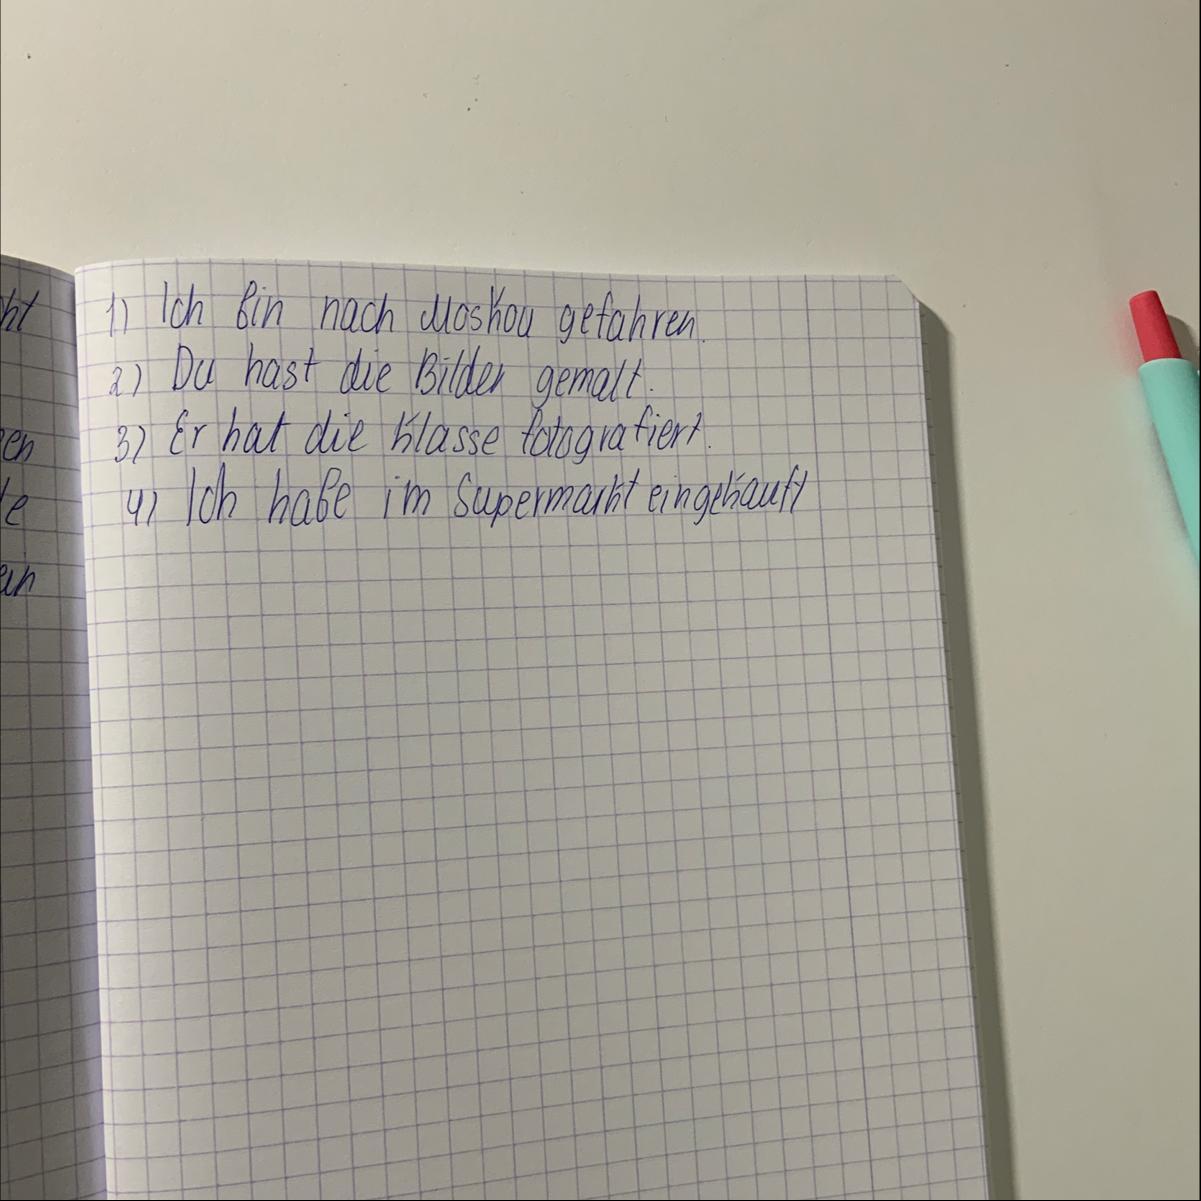 1) Ich bin nach Moskou gefahren.
2) Du hast die Bilder gemalt.
3) Er hat die Klasse fotografiert.
4) Ich habe im Supermarkt eingekauft